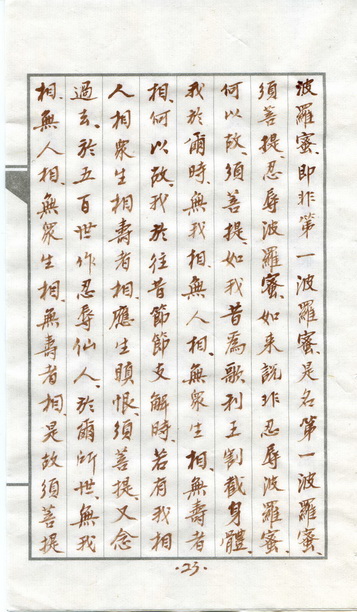 波羅蜜、即非第一波羅蜜、是名第一波羅蜜、
須菩提、忍辱波羅蜜、如來說非忍辱波羅蜜、
何以故、須菩提、如我昔為歌利王割截身體、
我於爾時、無我相、無人相、無眾生相、無壽者
相、何以故、我於往昔節節支解時、若有我相
人相眾生相壽者相、應生瞋恨、須菩提、又念
過去、於五百世作忍辱仙人、於爾所世、無我
相、無人相、無眾生相、無壽者相、是故須菩提
·23·